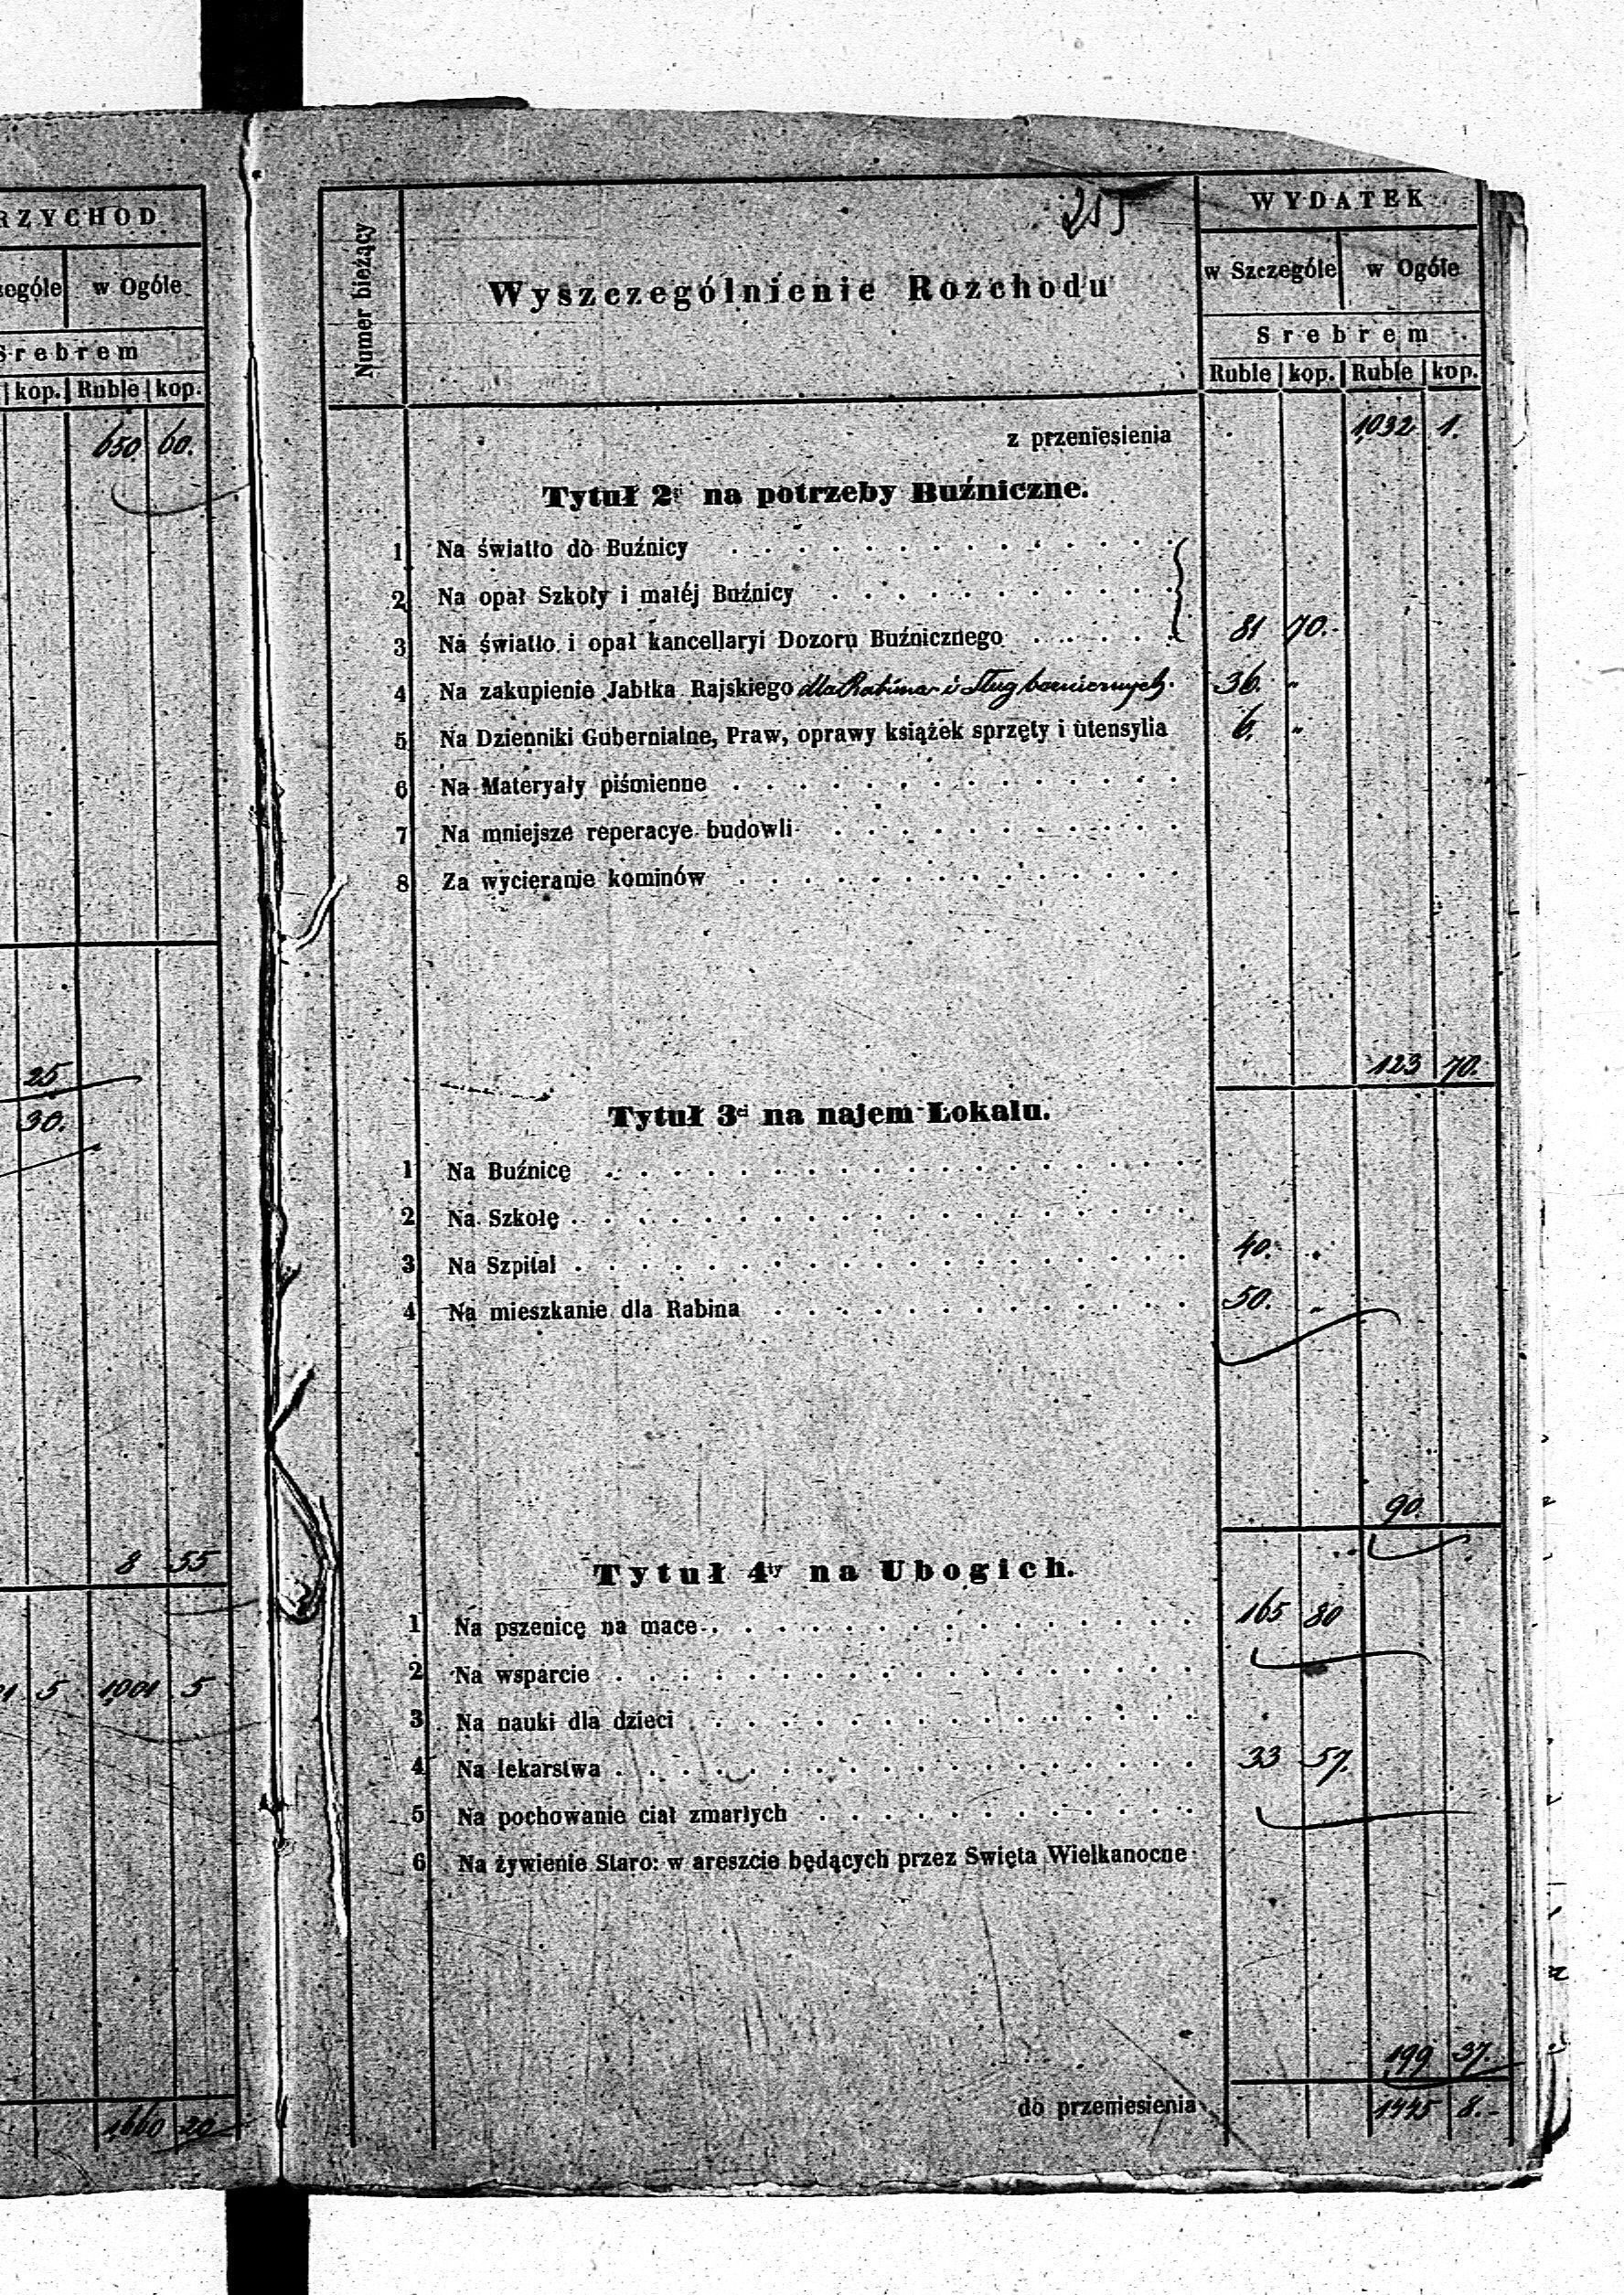 RZYCHOD
zególe w Ogóle
Srebrem
kop. Ruble kop.
650. 60.
25
30.
8 55
5 1001 5
1660 20
255
Numer bieżący
Wyszczególnienie Rozchodu
WYDATEK
w Szczególe w Ogóle
Srebrem
Ruble kop. Ruble kop.
z przeniesienia 1032 1.
Tytuł 2i na potrzeby Buźniczne.
1 Na światło do Buźnicy
2 Na opał Szkoły i małéj Buźnicy
3 Na światło i opał kancellaryi Dozoru Buźnicznego 81 70.
4 Na zakupienie Jabłka Rajskiego dla Rabina i Sług 36. "
5 Na Dzienniki Gubernialne, Praw, oprawy książek sprzęty i utensylia 6. "
6 Na Materyały piśmienne
7 Na mniejsze reperacye budowli
8 Za wycieranie kominów
123 70.
Tytuł 3ci na najem Lokalu.
1 Na Buźnicę
2 Na Szkołę
3 Na Szpital 40. "
4 Na mieszkanie dla Rabina 50. "
90.
Tytuł 4ty na Ubogich.
1 Na pszenicę na mace 165 80
2 Na wsparcie
3 Na nauki dla dzieci
4 Na lekarstwa 33 57.
5 Na pochowanie ciał zmarłych
6 Na żywienie Staro: w areszcie będących przez Swięta Wielkanocne
199 37.
do przeniesienia 1445 8.